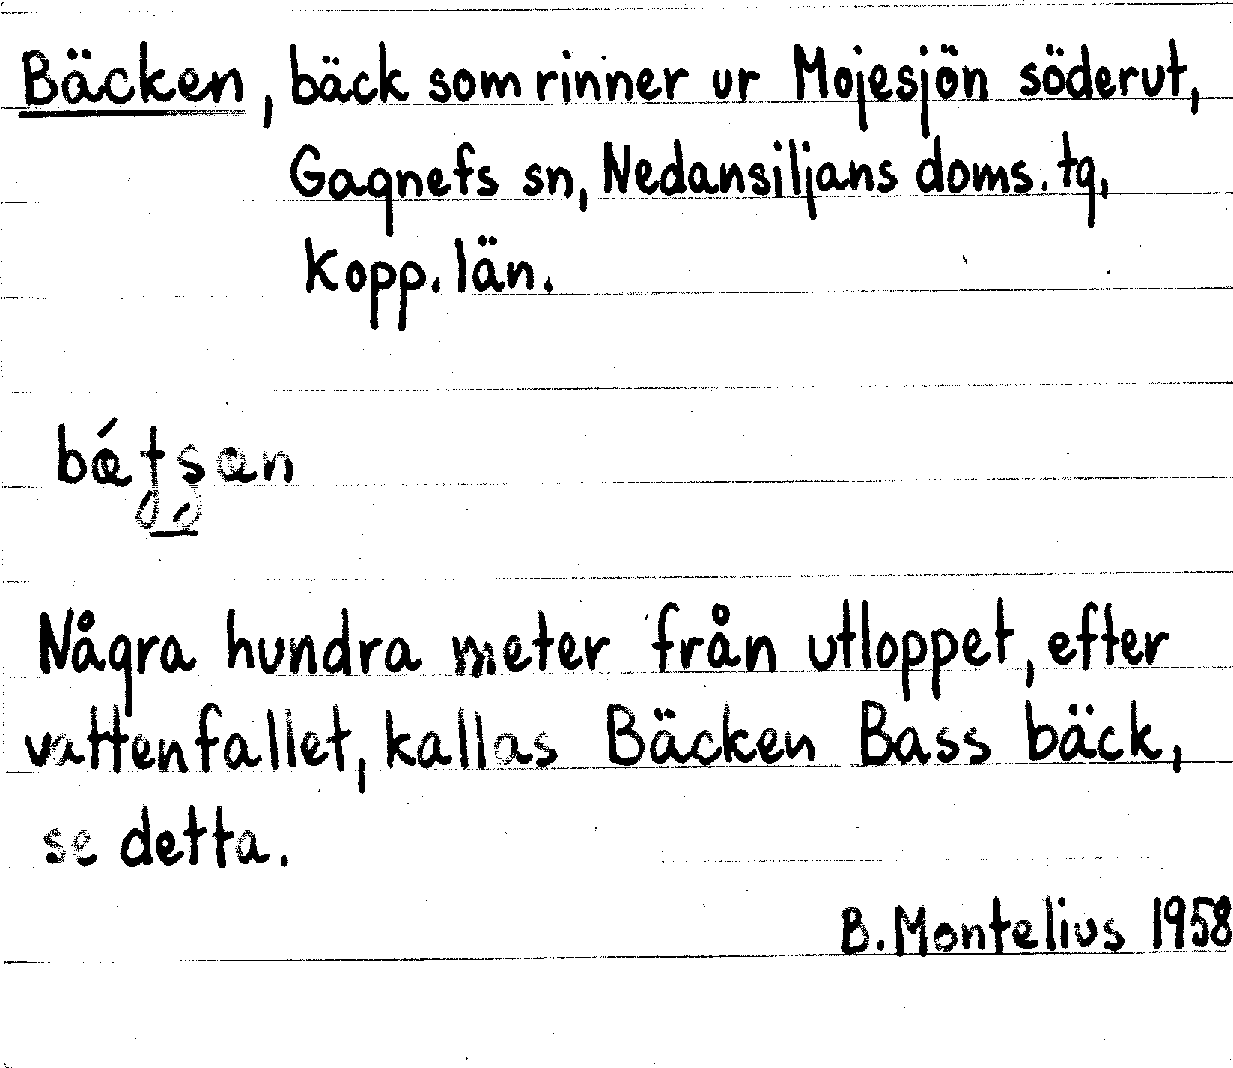 Bäcken, bäck som rinner ur Mojesjön söderut,
Gagnefs sn, Nedansiljans doms. tg,
Kopp. län.
Några hundra meter från utloppet, efter
vattenfallet, kallas Bäcken Bass bäck,
se detta.
B. Montelius 1958